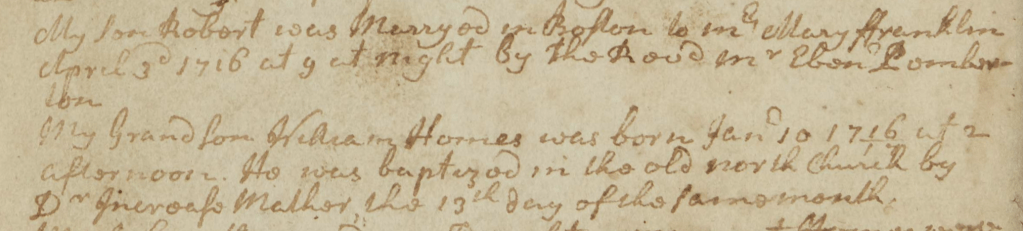 My son Robert was Marryed in Boston to mrs Mary ffranklin
April 3d 1716 at 9 at night by the Revd mr Eben Pember
ton
My Grandson William Homes was born Jan 10 1716 at 2
afternoon. He was baptized in the old north Church by
Dr Increase Mather, the 13th day of the same month.